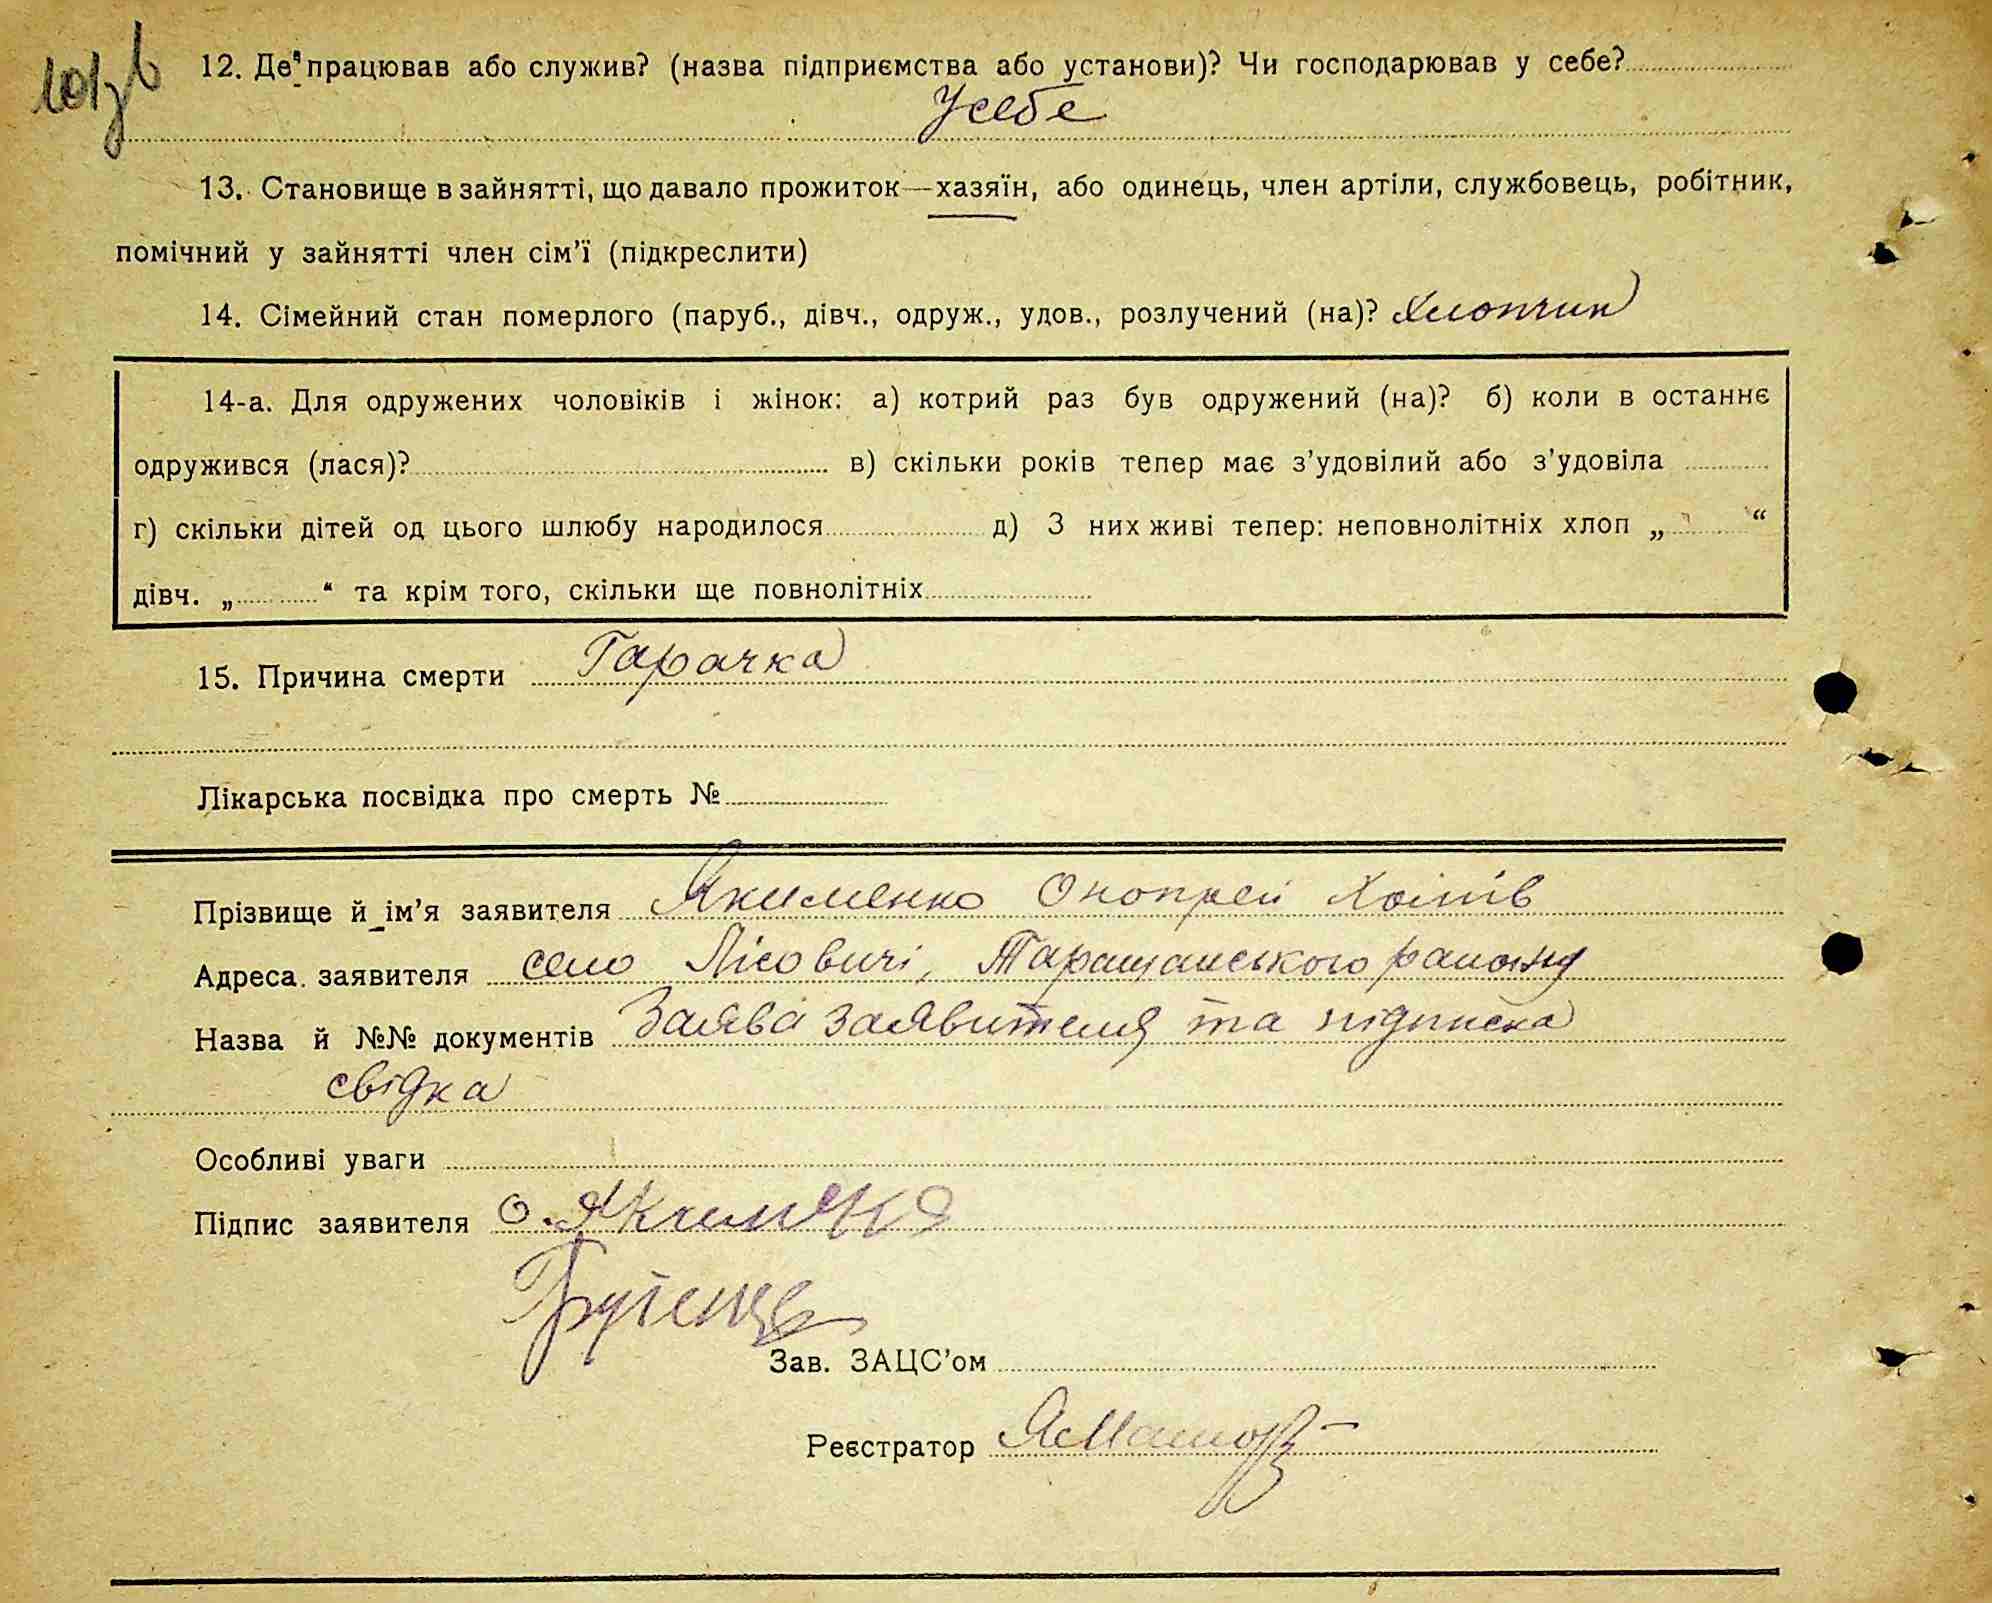 101зв
12. Де працював або служив? (назва підприємства або установи)? Чи господарював у себе?
Усебе
13. Становище в зайнятті, що давало прожиток—хазяїн, або одинець, член артіли, службовець, робітник,
помічний у зайнятті член сім'ї (підкреслити)
14. Сімейний стан померлого (паруб., дівч., одруж., удов., розлучений (на)? Хлопчик
14-а. Для одружених чоловіків і жінок: а) котрий раз був одружений (на)? б) коли в останнє
одружився (лася)? в) скільки років тепер має з'удовілий або з'удовіла
г) скільки дітей од цього шлюбу народилося д) З них живі тепер: неповнолітніх хлоп „ “
дівч. „ “ та крім того, скільки ще повнолітніх
15. Причина смерти Гарачка
Лікарська посвідка про смерть №
Прізвище й ім'я заявителя Якименко Онопрей
Адреса заявителя село Лісовичі, Таращанського району
Назва й №№ документів Заява заявителя та підписка
свідка
Особливі уваги
Підпис заявителя О. Якименко
Зав. ЗАЦС'ом
Реєстратор